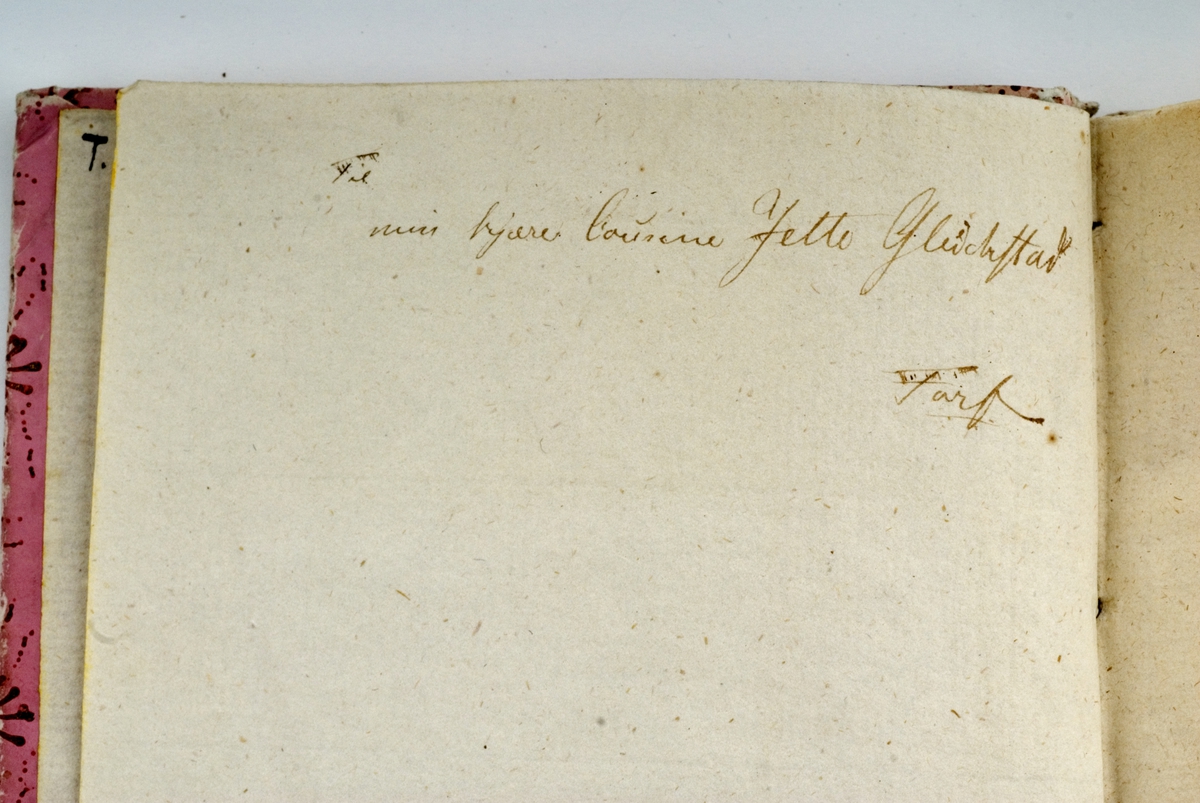 T.
Til
min kjære Cousine Jette Glückstad
Forf